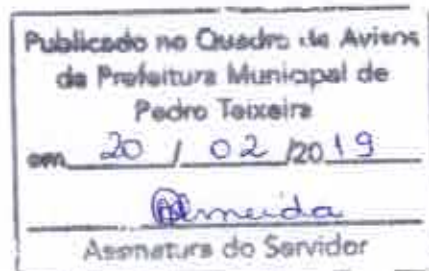 Publicado no Quadro de Avisos
da Prefeitura Municipal de
Pedro Teixeira
em 20 / 02 /2019
Almeida
Assinatura do Servidor